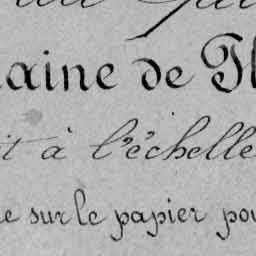 aine de Pl
it à l'échelle
e sur le papier pou